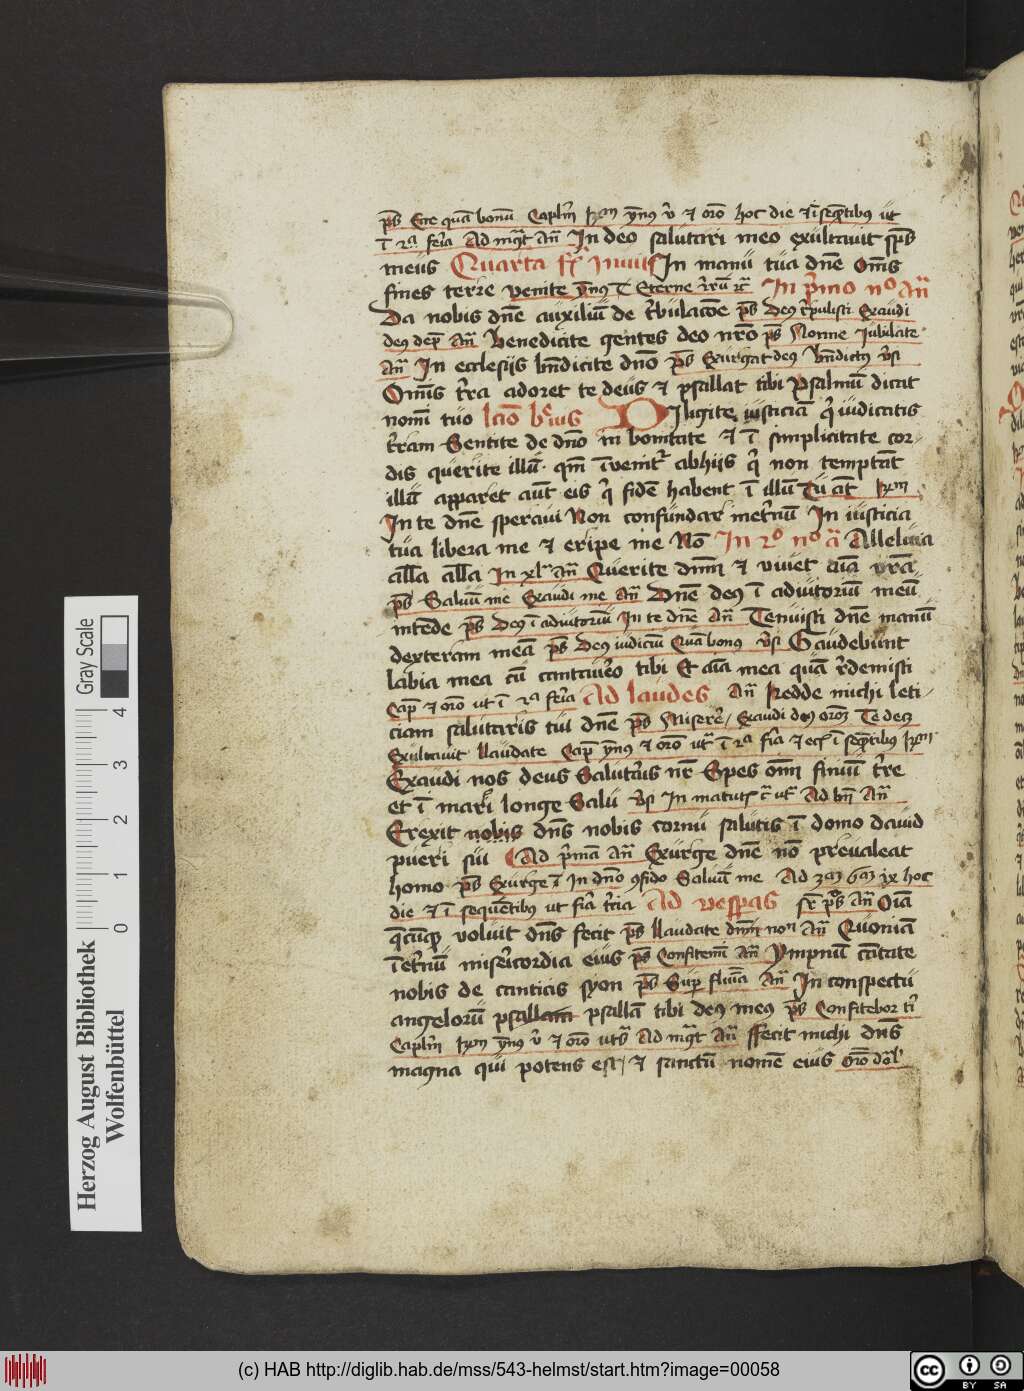 p̄s Ecce quā bonū Caplm̄ ymnꝰ v̄ ⁊ orō hoc die ⁊ ī seq̄ntibus ut
ī 2ᵃ feria Ad mgt an̄ In deo salutari meo exultavit sp̄s
meus Quarta fr̄ Invit In manu tua dn̄e om̄s
fines terre venite ymnꝰ Eterne rerū
In p̄mo nᵒ an̄
Da nobis dn̄e auxiliū de tribulacōe p̄s Deus repulisti Exaudi
deus dep̄ an̄ Benedicite gentes deo nr̄o p̄s Nonne Iubilate
an̄ In ecclesijs bn̄dicite dn̄o p̄s Exurgat deus bn̄dictꝰ v̄s
Om̄is t̄ra adoret te deus ⁊ psallat tibi Psalmū dicat
nomī tuo lcīo Diligite iusticiā q̄ iudicatis
t̄ram Sentite de dn̄o in bonitate ⁊ ī simplicitate cor
dis querite illū qm̄ īvenitʳ abhijs q̄ non temptāt
illū apparet aūt eis q̄ fidē habent ī illū Tu āt
In te dn̄e speravi Non confundar īet̄nū In iusticia
tua libera me ⁊ eripe me Nō In 2ᵒ nᵒ ā Alleluia
all̄a all̄a In xlᵃ an̄ Querite dnm̄ ⁊ vivet aīa vr̄a
p̄s Saluū me Exaudi me an̄ Dn̄e deus ī adiutoriū meū
intēde p̄s Deus ī adiutoriū In te dn̄e an̄ Tenuisti dn̄e manū
dexteram meā p̄s Deus iudiciū Quā bonus v̄s Gaudebunt
labia mea cū cantavero tibi Et aīa mea quā redemisti
Cap̄ ⁊ orō ut ī 2ᵃ feria Ad laudes an̄ Redde michi leti
ciam salutaris tui dn̄e p̄s Miserere Exaudi deus orōm Te decꝫ
Exultavit Laudate Cap̄ ymnꝰ ⁊ orō utʳ ī 2ᵃ fīa ⁊ ī seq̄ntibus
Exaudi nos deus Salutaris nr̄ Spes om̄ finiū t̄re
et ī mari longe Salu v̄s In matutis ut Ad bn̄ an̄
Erexit nobis dn̄s nobis cornu salutis ī domo david
pueri sui Ad p̄mā an̄ Exurge dn̄e nō prevaleat
homo p̄s Exurge In dn̄o ꝯfido Saluū me Ad 3ᵃᵐ 6ᵃᵐ ix hoc
die ⁊ ī sequētibus ut fīa t̄cia Ad vesꝑas an̄ Oīa
q̄cūqꝫ voluit dn̄s fecit p̄s Laudate dnm̄ an̄ Quoniā
īet̄nū misericordia eius p̄s Confitemī an̄ Ympnū cātate
nobis de canticis syon p̄s Sup̄ flumīa an̄ In conspectu
angelorū psallam psallā tibi deus meus p̄s Confitebor ti
Caplm̄ ymnꝰ v̄ ⁊ orō Ad mgt an̄ ffecit michi dn̄s
magna qui potens est ⁊ sanctū nomē eius
Gray Scale
4
3
2
1
0
Herzog August Bibliothek
Wolfenbüttel
(c) HAB http://diglib.hab.de/mss/543-helmst/start.htm?image=00058
cc
BY SA